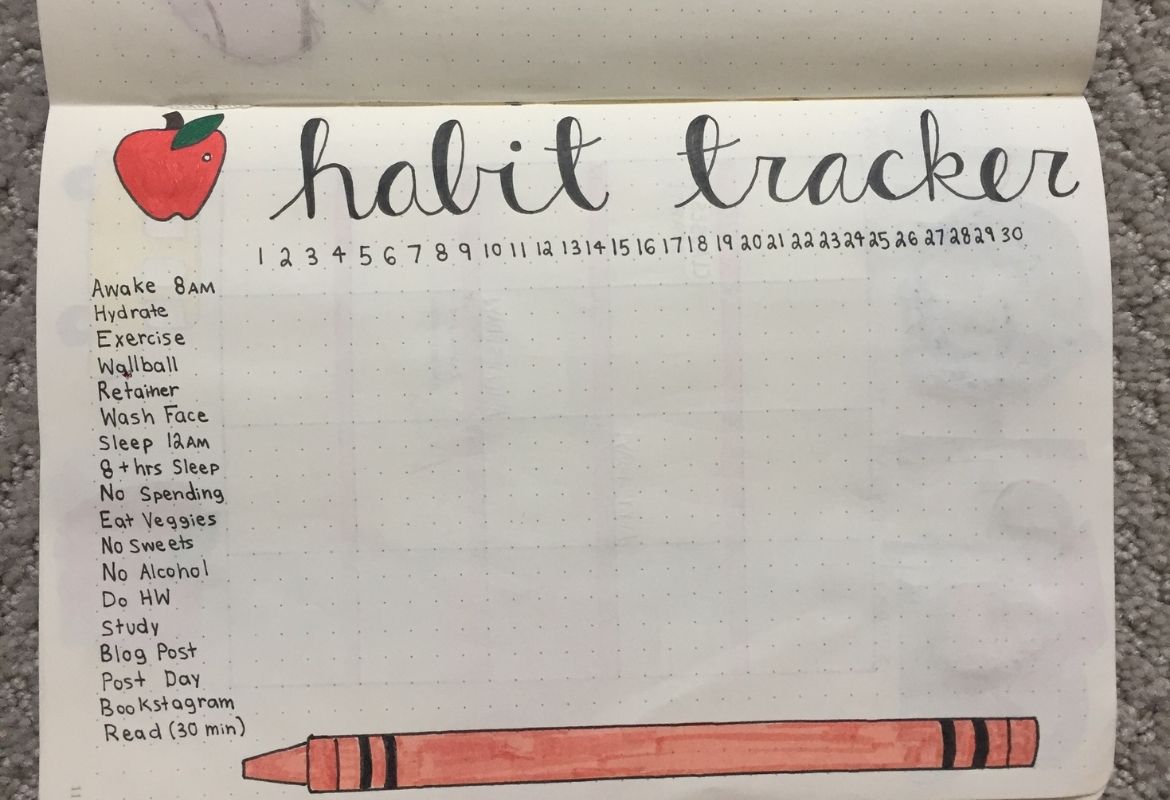 habit tracker
1 2 3 4 5 6 7 8 9 10 11 12 13 14 15 16 17 18 19 20 21 22 23 24 25 26 27 28 29 30
Awake 8AM
Hydrate
Exercise
Wallball
Retainer
Wash Face
Sleep 12AM
8+hrs Sleep
No Spending
Eat Veggies
No Sweets
No Alcohol
Do HW
Study
Blog Post
Post Day
Bookstagram
Read (30 min)
11